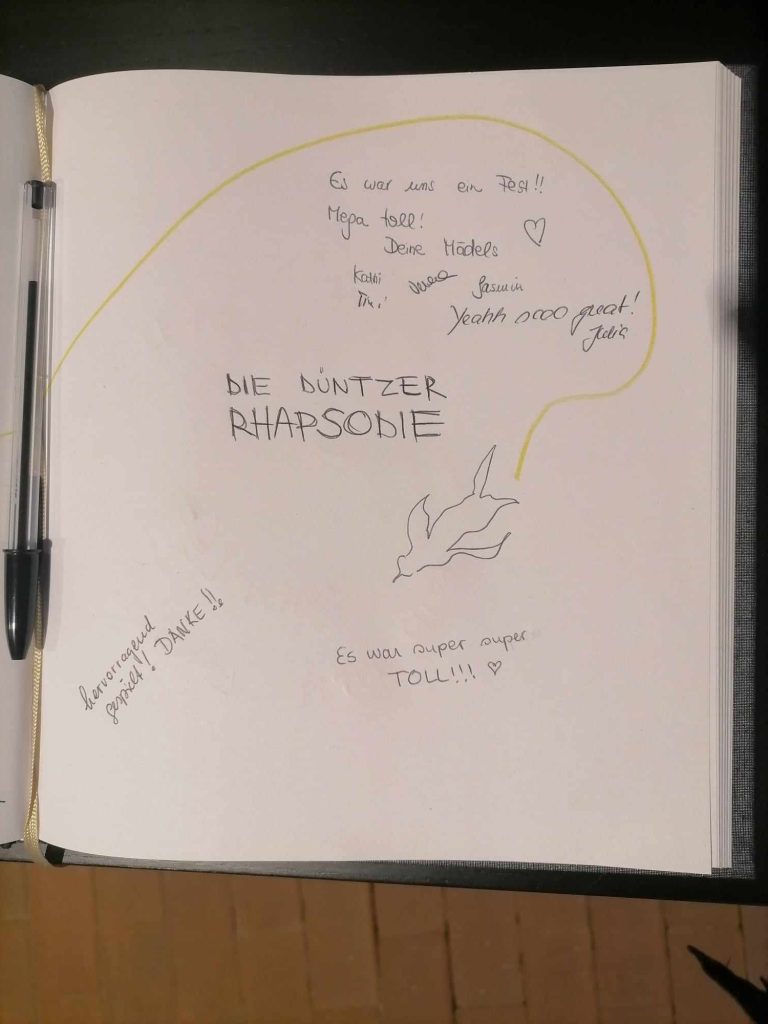 Es war uns ein Fest!!
Mega toll! ♡
Deine Mädels
Kathi Jasmin
Tini
Yeahh sooo great!
Julia
DIE DÜNTZER
RHAPSODIE
hervorragend
gespielt! DANKE!!
Es war super super
TOLL!!! ♡